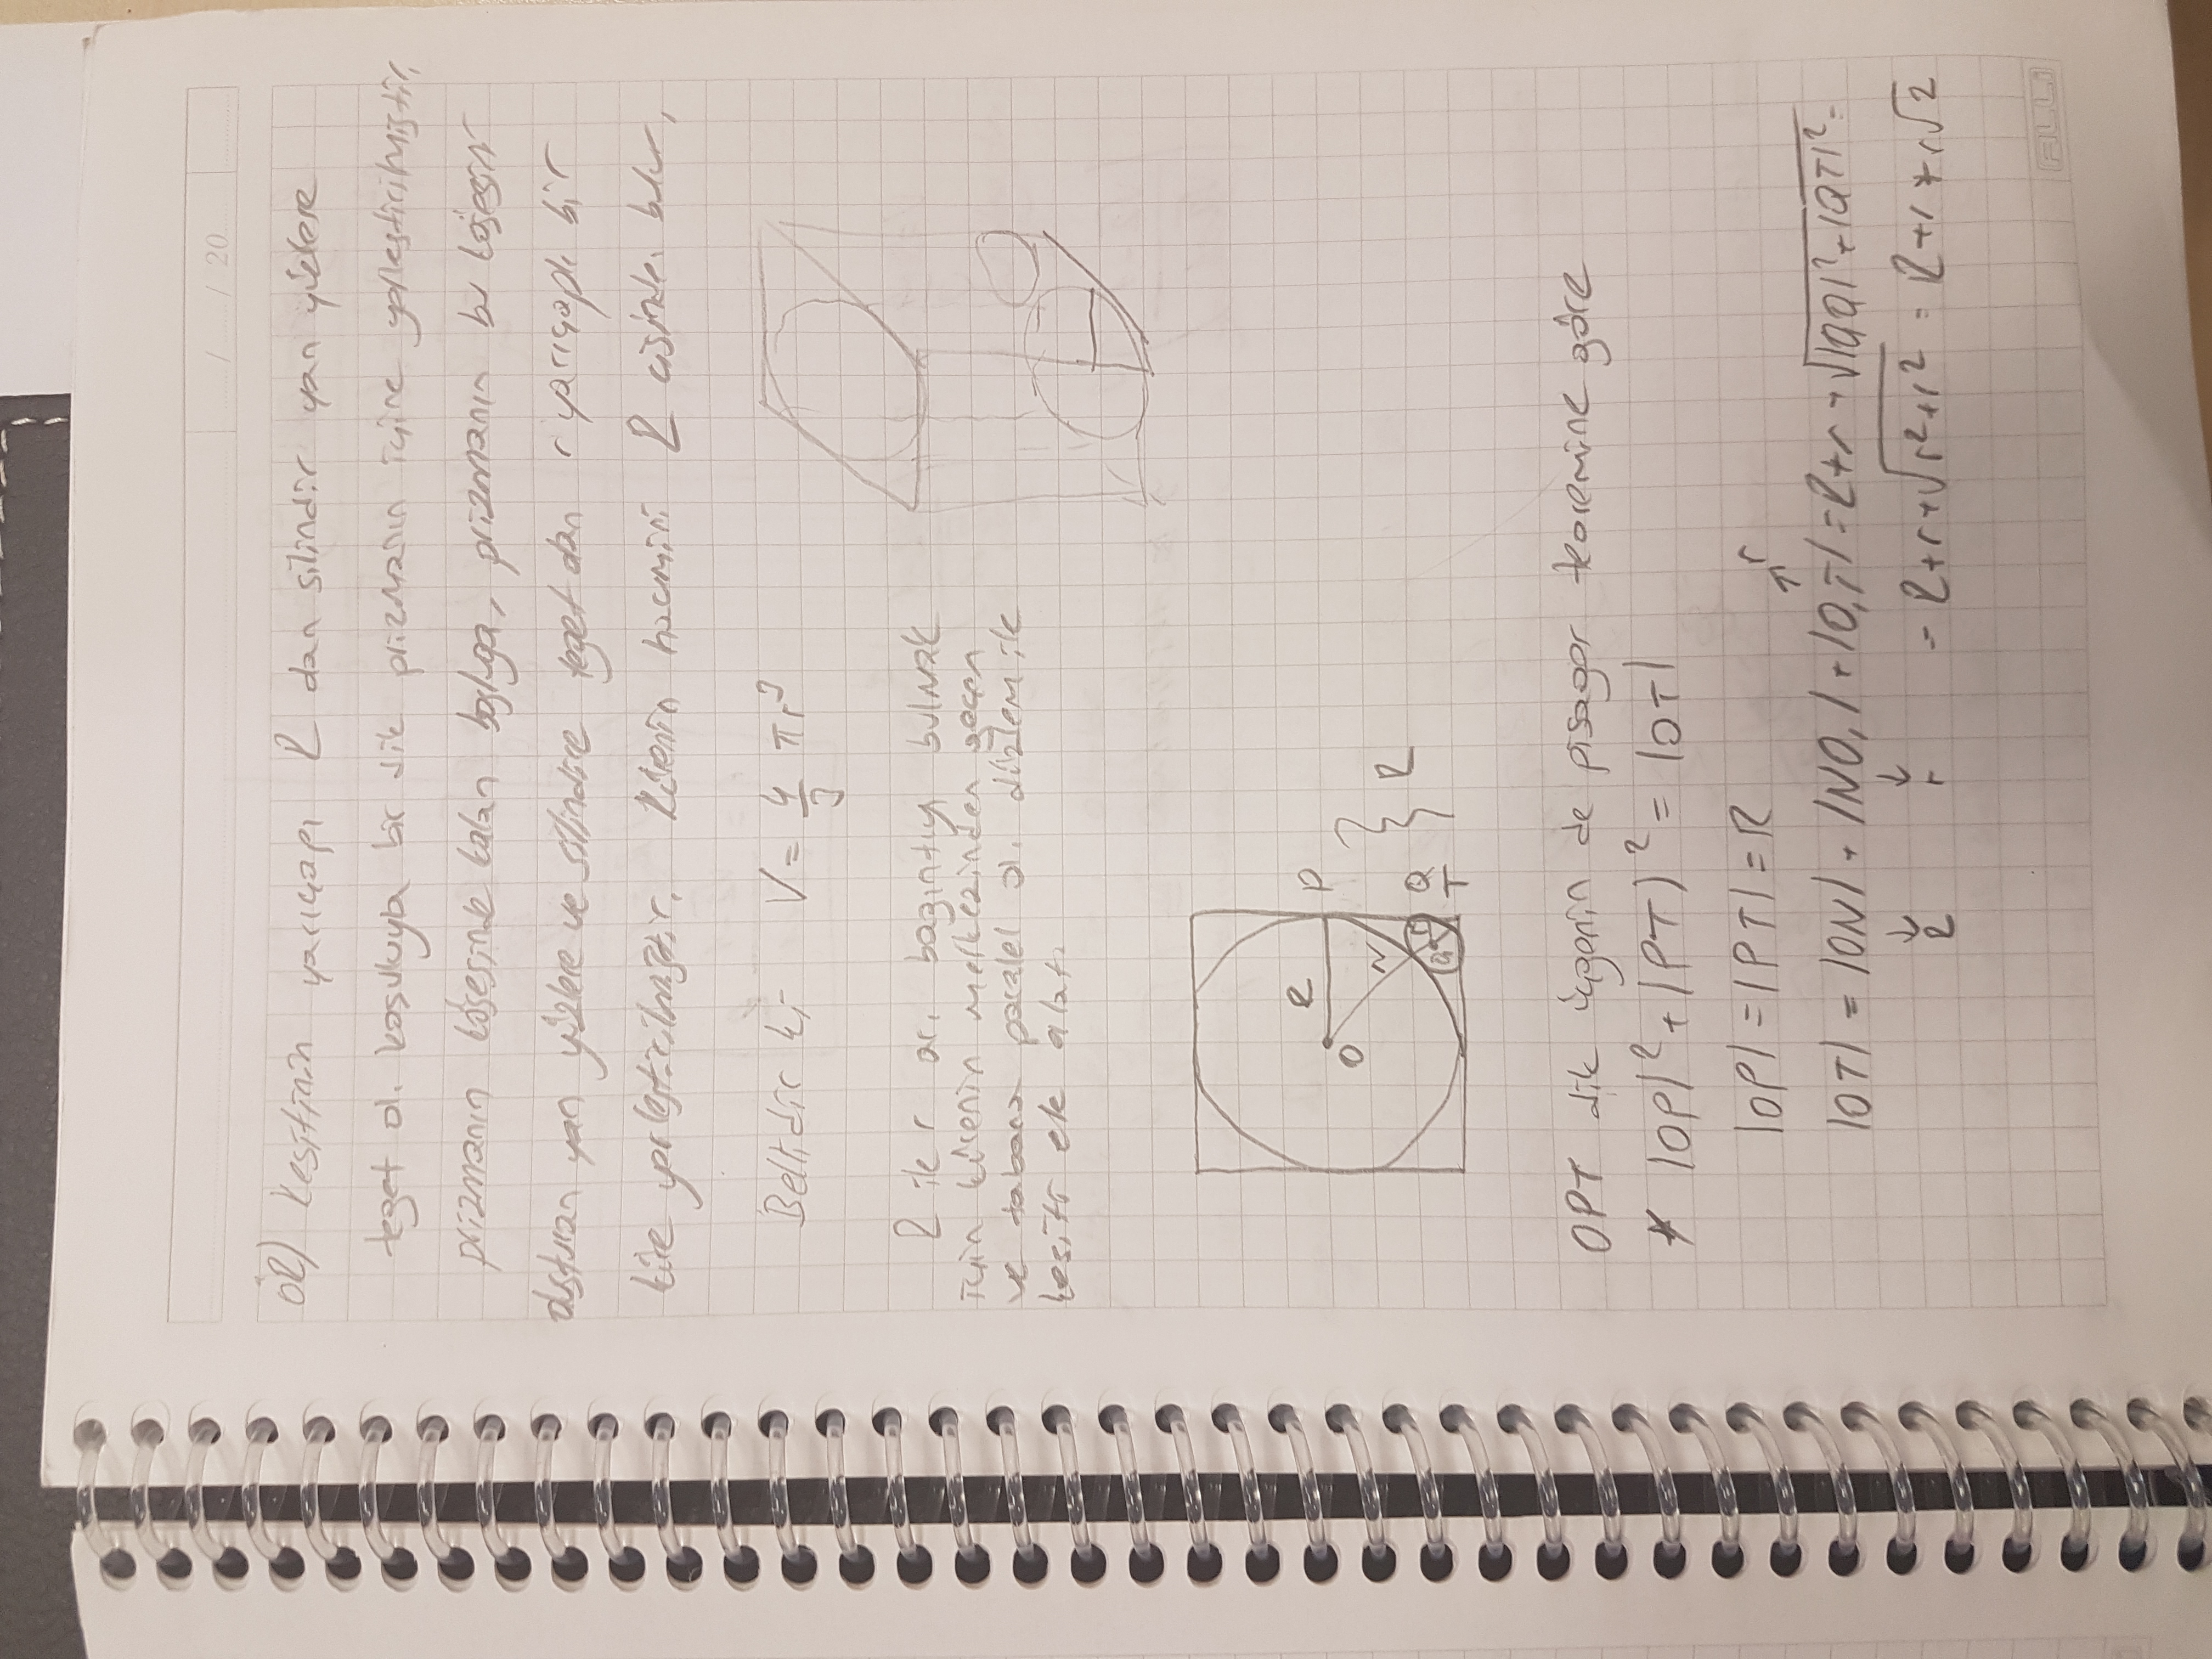 / / 20
ÖR) Kesitinin yarıçapı R olan silindir yan yüzlere
teğet ol. koşuluyla bir dik prizmanın içine yerleştirilmiştir.
prizmanın köşesinde kalan boşluğa, prizmanın bu köşesini
oluşturan yan yüzlere ve silindire teğet olan r yarıçaplı bir
küre yerleştirilmiştir. Kürenin hacmini R cisinden bulun,
Bellidir ki V = 4/3 πr³
R ile r ar. bağıntıyı bulmak
için kürenin merkezinden geçen
ve tabana paralel ol. düzlem ile
kesiti ele alalı.
R P
O
N R
r Q
O₁ T
OPT dik üçgenin de pisagor teoremine göre
* |OP|² + |PT|² = |OT|
|OP| = |PT| = R
r
|OT| = |ON| + |NO₁| + |O₁T| = R+r+√|O₁Q|²+|QT|² =
R r = R+r+√r²+r² = R+r+r√2
ALLi